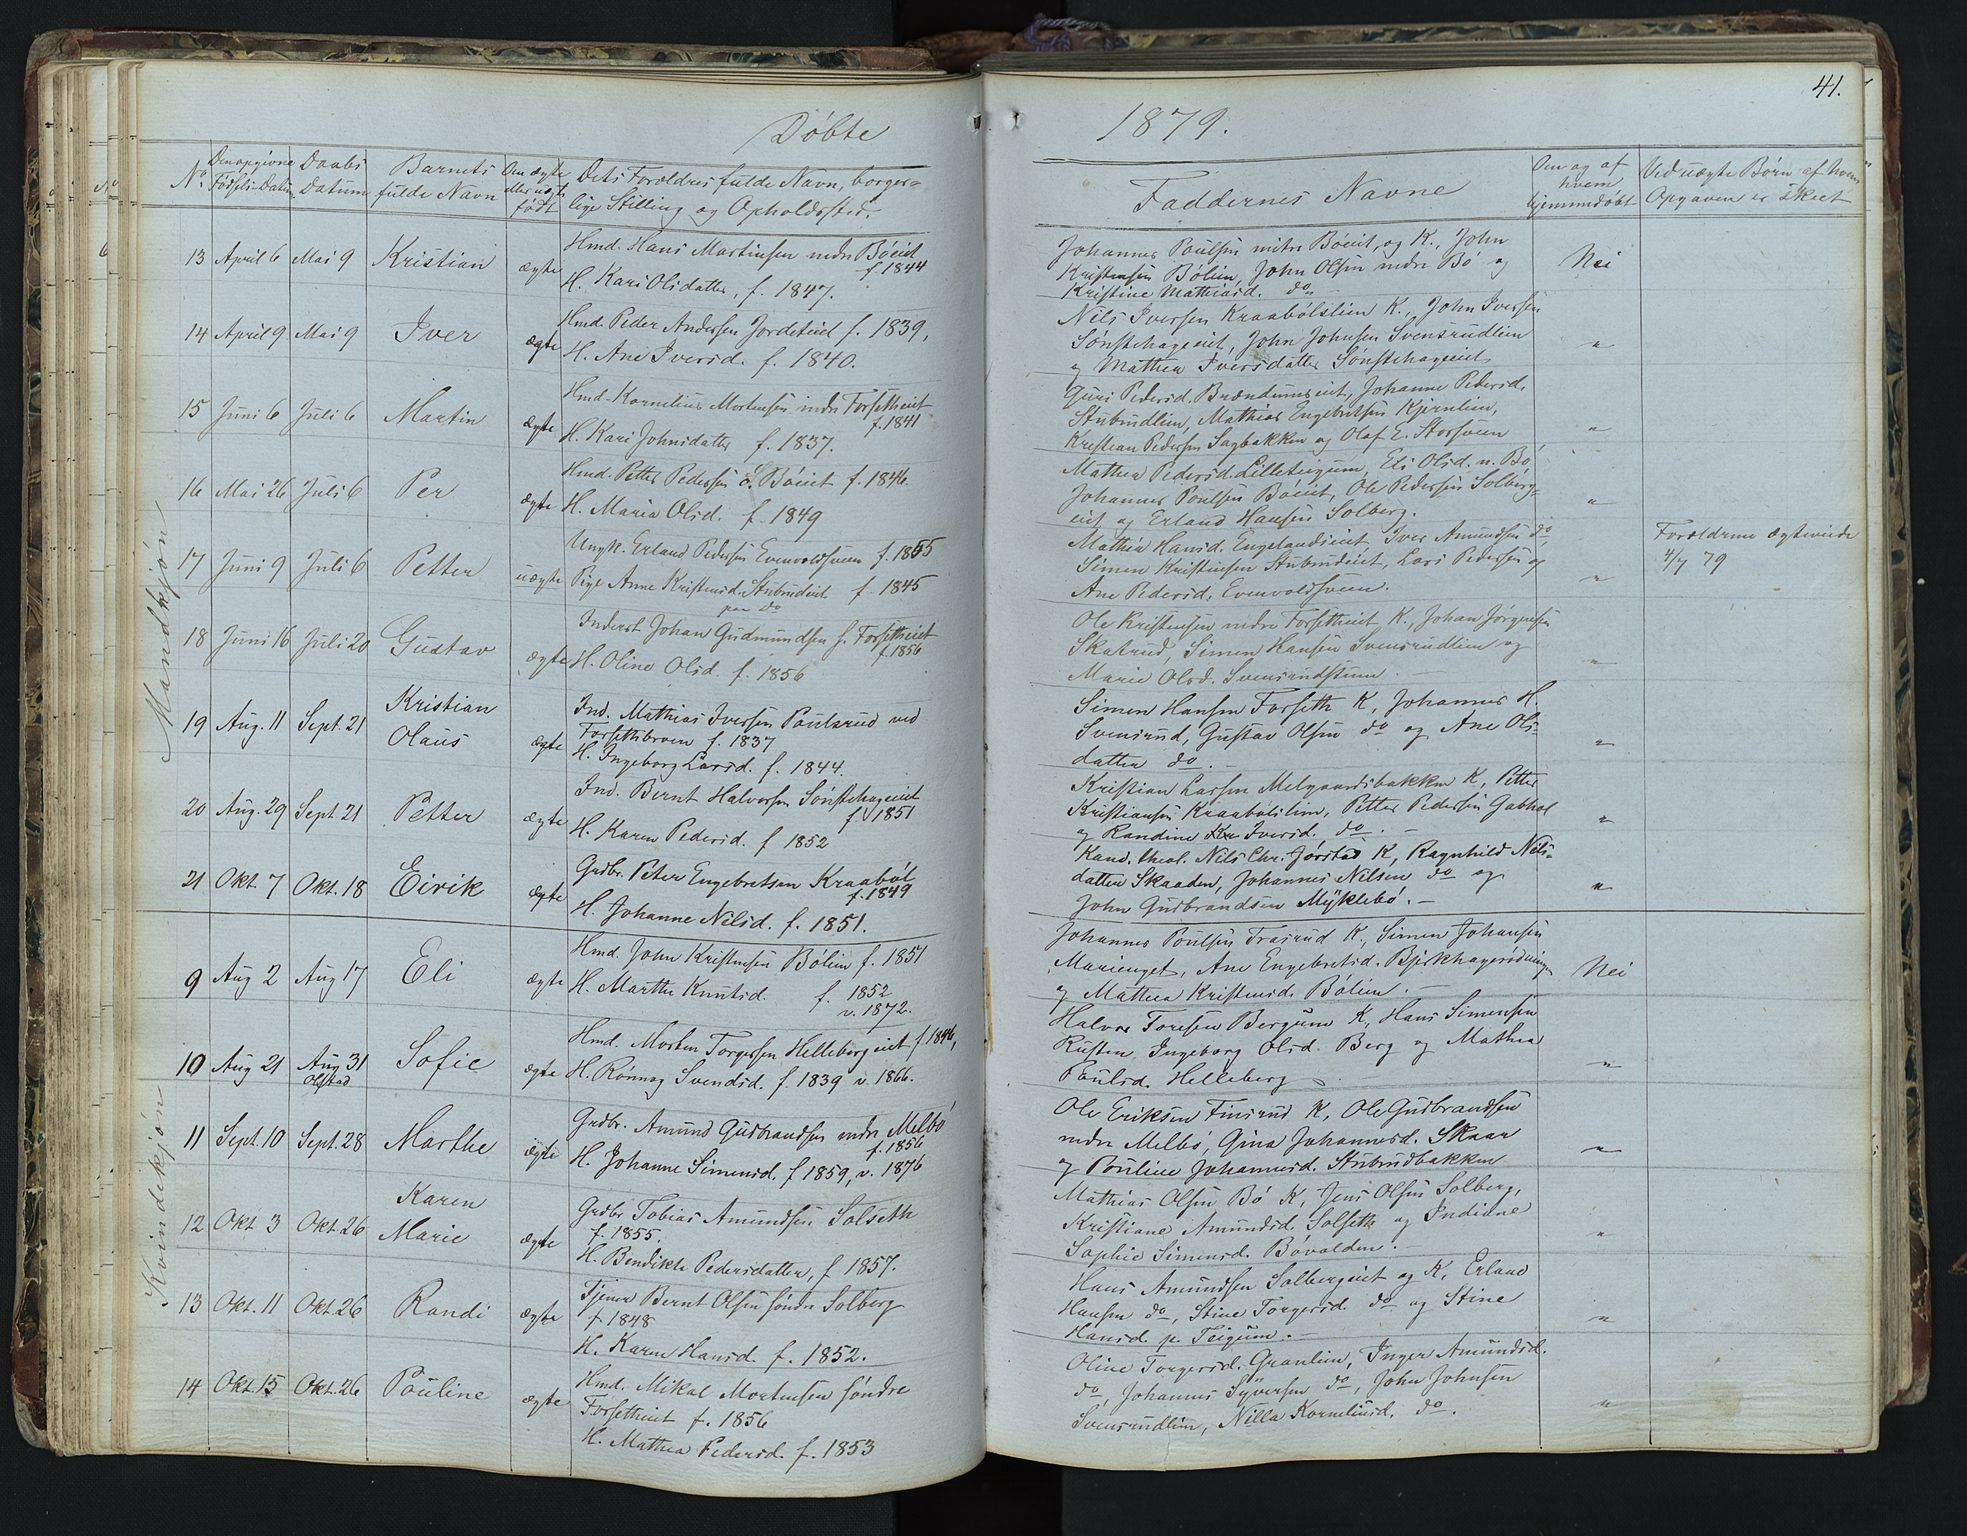 Døbte
1879.
41.
No
Den opgivne
Fødsels-Datum
Daabs
Datum
Barnets
fulde Navn
Om ægte
eller uægte
født
Dets Forældres fulde Navn, borger-
lige Stilling og Opholdssted.
Faddernes Navne
Om og af
hvem
hjemmedøbt
Ved uægte Børn af hvem
Opgaven er skeet
Mandkjøn
13 April 6 Mai 9 Kristian ægte
Hmd. Hans Martinsen nedre Bøeiet
f. 1844
H. Kari Olsdatter, f. 1847.
Johannes Poulsen nedre Bøeiet, og K., John
Kristensen Bølien, John Olsen nedre Bø og
Kristine Mathiasd. do
Nei
14 April 9 Mai 9 Iver ægte
Hmd. Peder Andersen Jordeteiet f. 1839,
H. Ane Iversd. f. 1840.
Nils Iversen Kraabølslien K., John Iversen
Sønstehageeiet, John Johnsen Svensrudlien
og Mathea Iversdatter Sønstehageeiet
"
15 Juni 6 Juli 6 Martin ægte
Hmd. Kornelius Mortensen nedre Forsetheiet
f. 1841
H. Kari Johnsdatter f. 1837.
Guri Pedersd. Brændumseiet, Johanne Pedersd.
Stubrudlien, Mathias Engebretsen Kjernlien,
Kristian Pedersen Sagbakken og Olaf E. Storsveen
"
16 Mai 26 Juli 6 Per ægte
Hmd. Petter Pedersen ø. Bøeiet f. 1846.
H. Maria Olsd. f. 1849
Mathea Pedersd. Lilleteigum, Eli Olsd. n. Bø,
Johannes Poulsen Bøeiet, Ole Pedersen Solberg-
eiet og Erland Hansen Solberg.
"
17 Juni 9 Juli 6 Petter uægte
Ungk. Erland Pedersen Evenvoldsveen f. 1855
Pige Anne Kristensd. Stubrudeiet f. 1845
Mathea Hansd. Engelandseiet Iver Amundsen do,
Simen Kristensen Stubrudeiet, Lars Pedersen og
Ane Pedersd. Evenvoldsveen.
"
Forældrene ægteviede
4/7 79
18 Juni 16 Juli 20 Gustav ægte
paa do
Inderst Johan Gudmundsen s. Forsetheiet
f. 1856
H. Oline Olsd. f. 1856
Ole Kristensen nedre Forsetheiet K., Johan Jørgensen
Skatrud, Simen Hansen Svensrudlien og
Marie Olsd. Svensrudstuen.
"
19 Aug. 11 Sept. 21 Kristian
Olaus ægte
Ind. Mathias Iversen Poulsrud ved
Forsethsbroen f. 1837
H. Ingeborg Larsd. f. 1844.
Simen Hansen Forseth K, Johannes H.
Svensrud, Gustav Olsen do og Ane Ols-
datter do.
"
20 Aug. 29 Sept 21 Petter ægte
Ind. Bernt Halvorsen Sønstehageeiet
f. 1851
H. Karen Pedersd. f 1852
Kristian Larsen Melgaardsbakken K, Petter
Kristiansen Kraabølslien, Petter Pedersen Gabhol
og Randine Iversd. do.
"
21 Okt. 7 Okt. 18 Eirik ægte
Grdbr. Peter Engebretsen Kraabøl
f. 1849
H. Johanne Nilsd. f. 1851.
Kand. theol. Nils Chr. Jørstad K, Ragnhild Nils-
datter Skaaden, Johannes Nilsen do og
John Gudbrandsen Myklebø.
"
Kvindekjøn
9 Aug 2 Aug 17 Eli ægte
Hmd. John Kristensen Bølien f. 1851
H. Marthe Knutsd. f. 1852
v. 1872.
Johannes Poulsen Trasrud K., Simen Johansen
Marienget, Ane Engebretsd. Bjerkhagerødningen
og Mathea Kristensd. Bølien.
Nei
10 Aug 21 Aug 31
Olstad Sofie ægte
Hmd. Morten Torgersen Hellebergeiet f. 1846,
H. Rønnog Svendsd. f. 1839 v. 1866.
Halvor Foresen Bergum K, Hans Simensen
Rusten, Ingeborg Olsd. Berg og Mathea
Poulsd. Helleberg
"
11 Sept. 10 Sept. 28 Marthe ægte
Grdbr. Amund Gudbrandsen nedre Melbø
f. 1856
H. Johanne Simensd. f 1859, v. 1876
Ole Eriksen Finsrud K, Ole Gudbrandsen
nedre Melbø, Gina Johannesd. Skaar
og Pouline Johannesd. Stubrudbakken
"
12 Okt. 3 Okt. 26 Karen
Marie ægte
Grdbr Tobias Amundsen Solseth
f. 1855.
H. Bendikte Pedersdatter, f 1857.
Mathias Olsen Bø K, Jens Olsen Solberg,
Kristiane Amundsd. Solseth og Indiane
Sophie Simensd. Bøvolden.
"
13 Okt. 11 Okt. 26 Randi ægte
Tjener Bernt Olsen søndre Solberg
f. 1848
H. Karen Hansd. f. 1852.
Hans Amundsen Solbergeiet og K, Erland
Hansen do, Stine Torgersd. do og Stine
Hansd. p. Teigum.
"
14 Okt. 15 Okt. 26 Pouline ægte
Hmd. Mikal Mortensen søndre
Forsetheiet f. 1856
H. Mathea Pedersd. f. 1853
Oline Torgersd. Granlien, Inger Amundsd.
do, Johannes Syversen do, John Johnsen
Svensrudlien, Nilla Korneliusd. do.
"